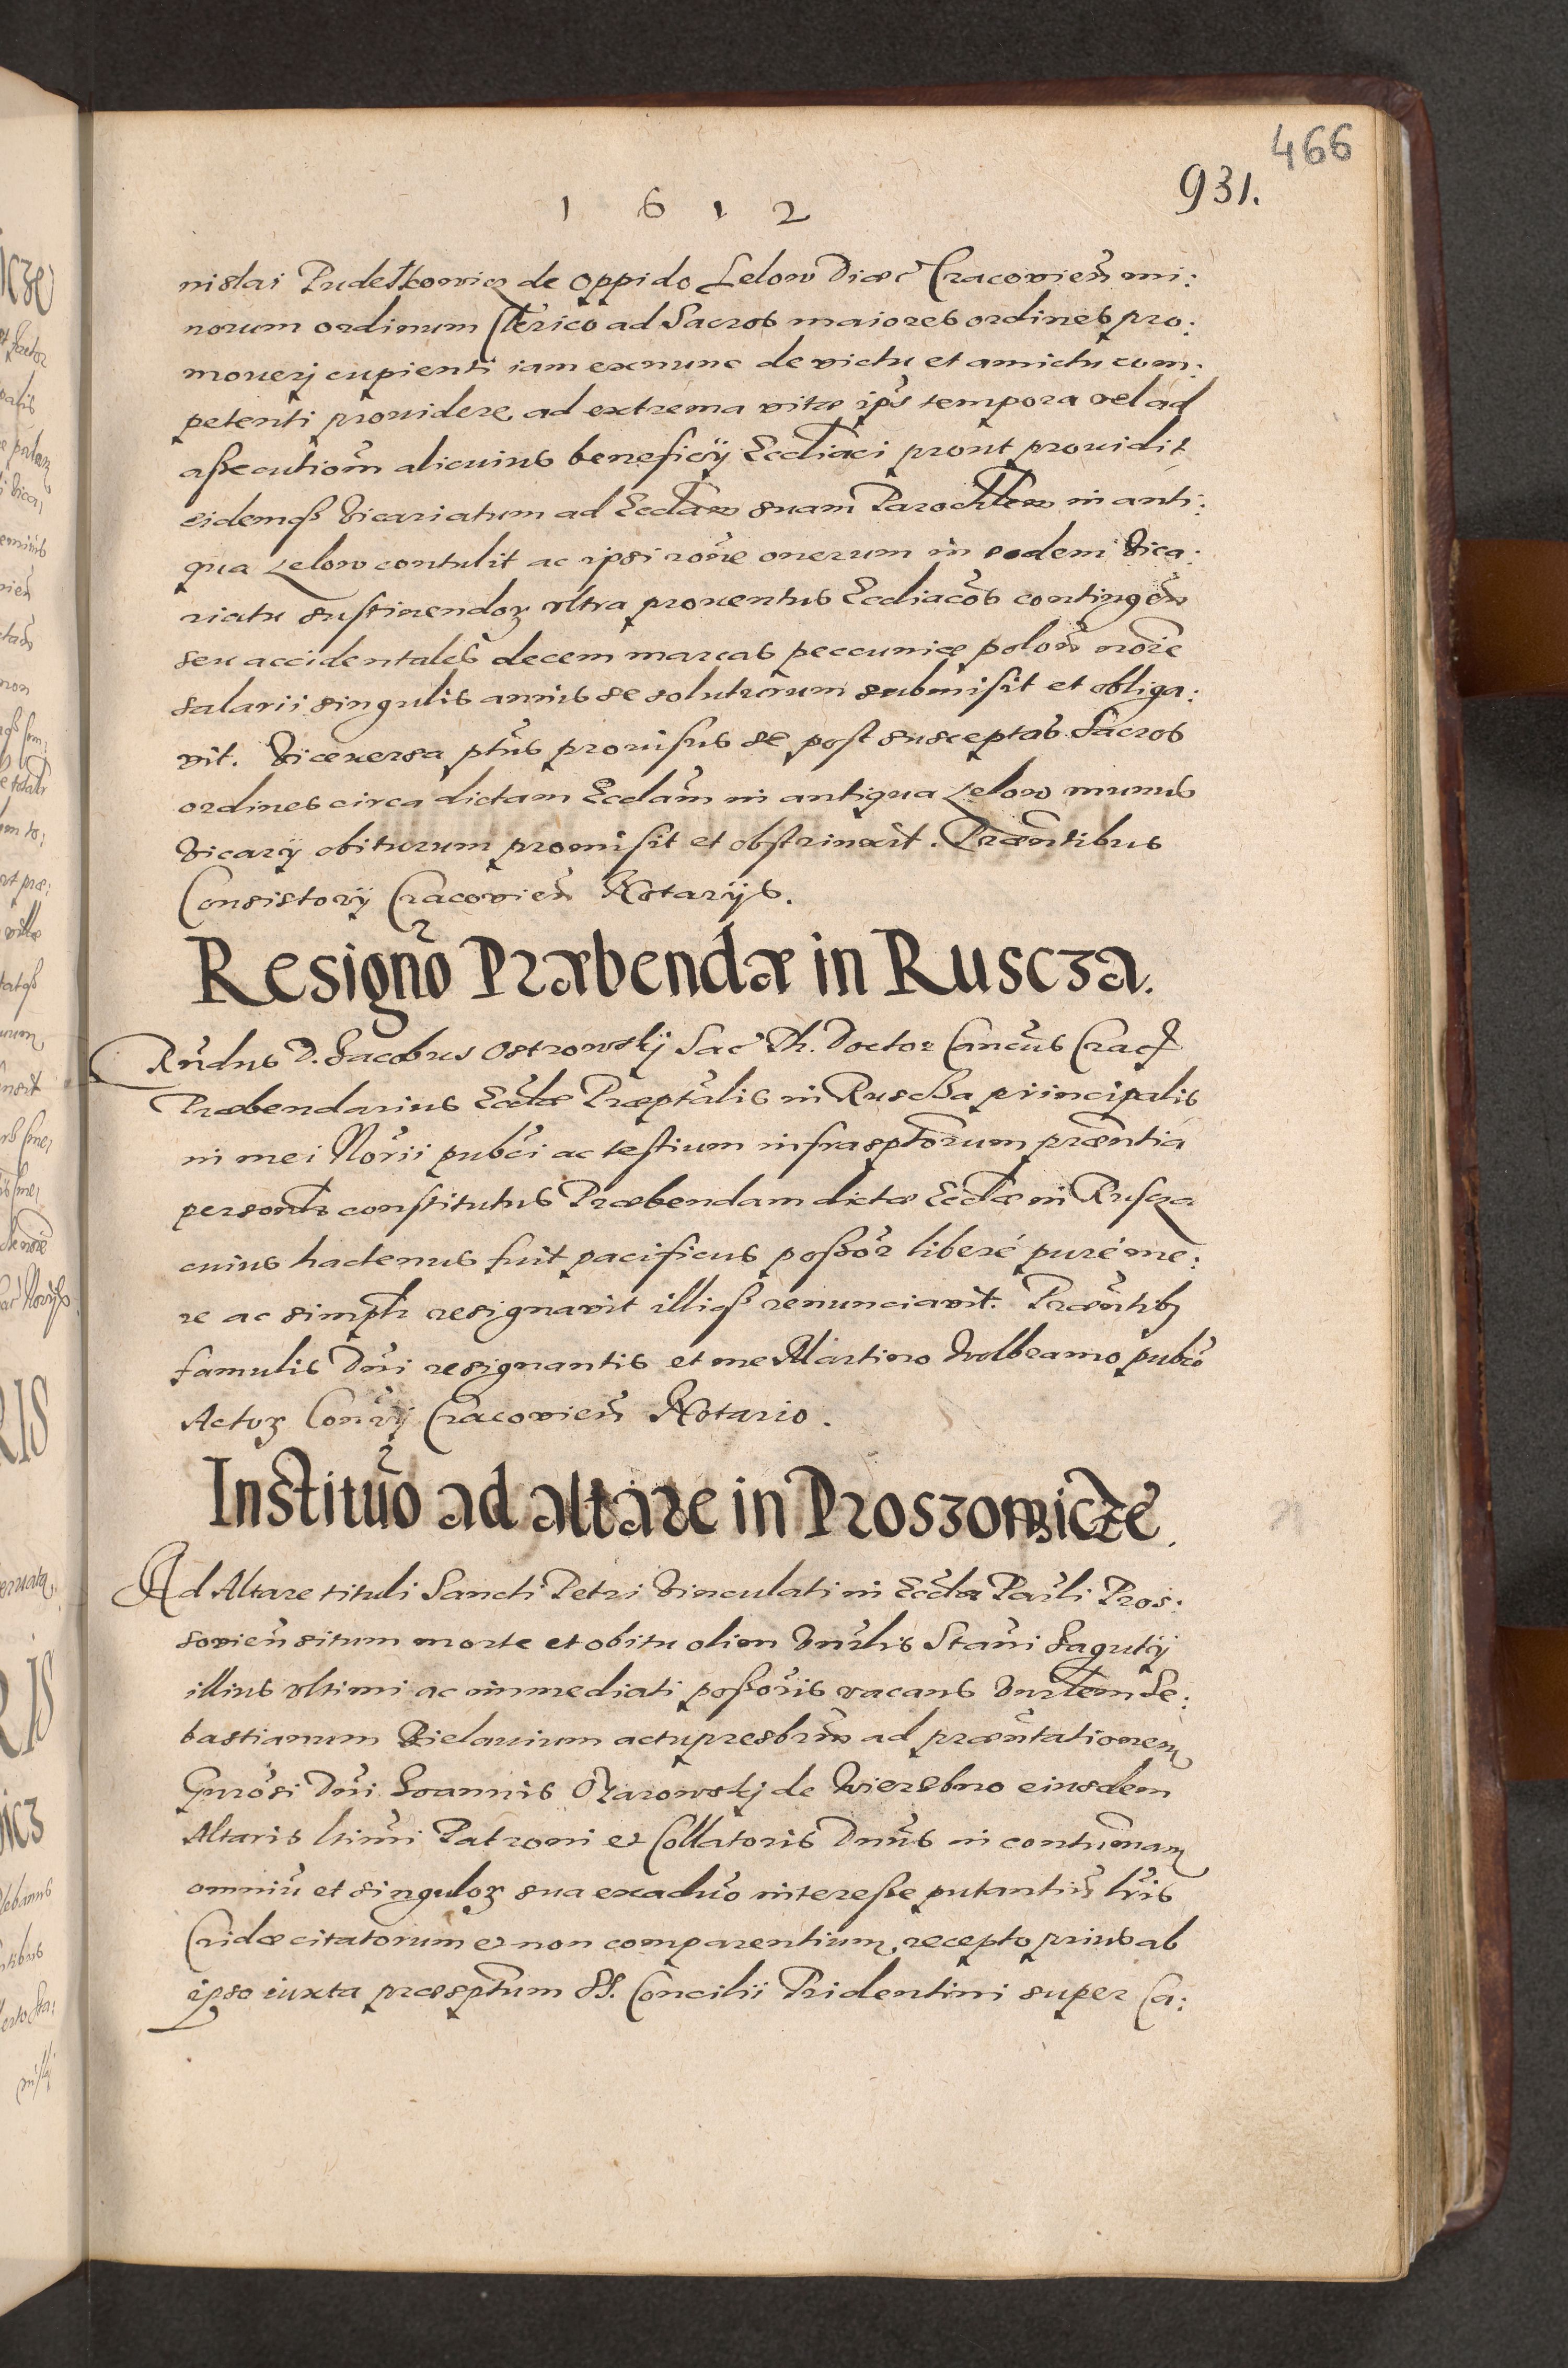 466
931.
1 6 1 2
nislai Pudełkowicz de oppido Lelow Diœc Cracovień mi:
norum ordinum Clerico ad Sacros maiores ordines pro:
moueri cupienti iam exnunc de victu et amictu com:
petenti prouidere ad extrema vitæ ip̃s tempora vel ad
assecutiom̃ alicuius beneficij Eccl̃iaci prout prouidit
eidemq3 Vicariatum ad Eccl̃am suam Parochl̃em in anti:
qua Lelow contulit ac ipsi rõne onerum in eodem Vica:
riatu sustinendoꝝ vltra prouentus Eccl̃iacõs contingeñ
seu accidentales decem marcas peccuniæ poloñ nõie
salarii singulis annis se soluturum submisit et obliga:
vit. Viceuersa pt̃us prouisus se post susceptos Sacros
ordines circa dictam Eccl̃am in antiqua Lelow munus
Vicarij obiturum promisit et obstrinxit. Præntibus
Consistorij Cracovień Notarijs.
Resignõ Præbendæ in Ruscza.
Rñdus D. Jacobus Ostrowskj Sac Th. Doctor Cancũs Crac
Præbendarius Eccl̃æ Præptalis in Ruscza principalis
in mei Norii pubci ac testium infrasptorum præntia
personlr constitutus Præbendam dictæ Eccl̃æ in Ruscza
cuius hactenus fuit pacificus possor liberé puré me:
re ac simplr resignavit illiq3 renunciavit. Præntibꝫ
famulis Dñi resignantis et me Martino Wolbramo pubco
Actoꝝ Conrij Cracovień Notario.
Institũo ad altare in Proszowicze.
Ad Altare tituli Sancti Petri Vinculati in Eccl̃a Parli Pros:
sovień situm morte et obitu olim Dnlis Stani Jagutij
illius vltimi ac immediati possoris vacans Dnlem Se:
bastianum Bielauium actu presbrm ad præntationem
Gnrosi Dñi Joannis Ożarowskj de Wierzbno eiusdem
Altaris ltimi Patroni et Collatoris Dnus in contumam
omniũ et singuloꝝ sua exaduõ interesse putantiũ lris
Cridæ citatorum et non comparentium, recepto prius ab
ipso iuxta præsptum SS. Concilii Tridentini super Ca: